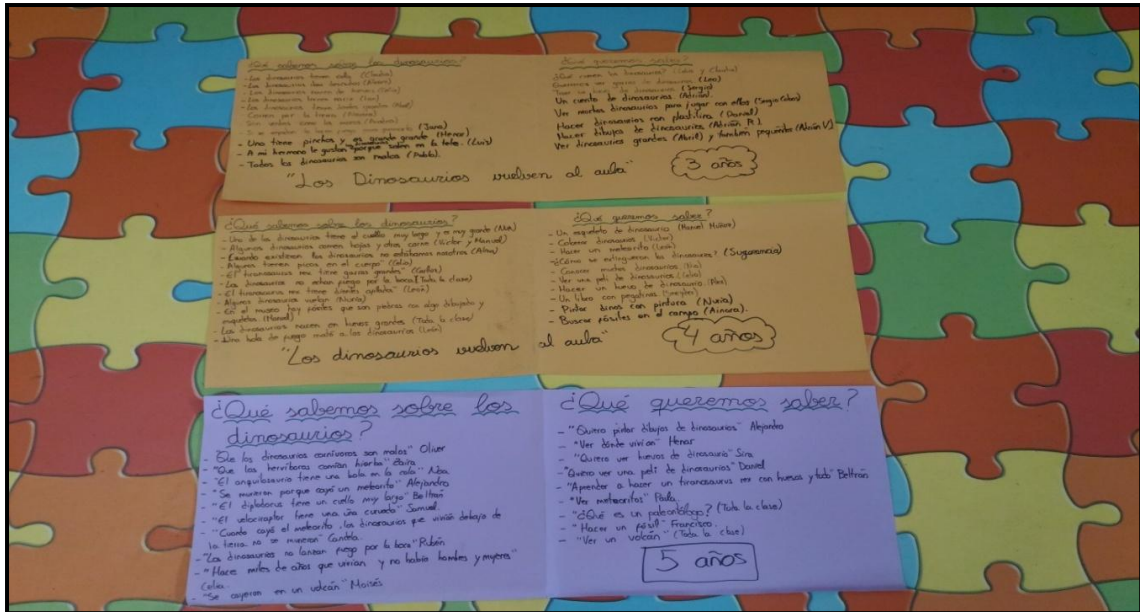 ¿Qué sabemos sobre los dinosaurios?
- Los dinosaurios tienen cola (Claudia)
- Los dinosaurios
- Los dinosaurios
- Los dinosaurios tienen
- Los dinosaurios tienen
Comen por la tierra
- Uno tiene pinchos y es grande grande (Henar)
- A mi hermano le gustan porque salen en la tele. (Luis)
- Todos los dinosaurios son malos (Pablo).
¿Qué queremos saber?
¿Qué comen los dinosaurios? ( y Claudia)
(Leo)
(Sergio)
Un cuento de dinosaurios (Adrián).
Ver muchos dinosaurios para jugar con ellos (Sergio )
Hacer dinosaurios con plastilina (Daniel)
Hacer dibujos de dinosaurios (Adrián R.)
Ver dinosaurios grandes (Abril) y también pequeños (Adrián V.)
"Los Dinosaurios vuelven al aula"
3 años
¿Qué sabemos sobre los dinosaurios?
- Uno de los dinosaurios tiene el cuello muy largo y es muy grande (Noa)
- Algunos dinosaurios comen hojas y otros carne (Víctor y Manuel)
- Cuando existieron los dinosaurios no estábamos nosotros
- Algunos tienen picos en el cuerpo" (Celia)
- "El tiranosaurus rex tiene garras grandes" (Carlos)
- Los dinosaurios no echan fuego por la boca (Toda la clase)
- "El tiranosaurus rex tiene dientes afilados" (Leo)
- Algunos dinosaurios vuelan (Nuria)
- En el museo hay fósiles que son piedras con algo dibujado y
esqueletos. (Manuel)
- Los dinosaurios nacen en huevos grandes (Toda la clase)
- Una bola de fuego mató a los dinosaurios
¿Qué queremos saber?
- Un esqueleto de dinosaurio (Manuel Núñez)
- Colorear dinosaurios (Víctor)
- Hacer un meteorito
- ¿Cómo se extinguieron los dinosaurios? (Sugerencia)
- Conocer muchos dinosaurios
- Ver una peli de dinosaurios (Celia)
- Hacer un huevo de dinosaurio
- Un libro con pegatinas
- Pintar dinos con pintura (Nuria)
- Buscar fósiles en el campo (Ainara).
"Los dinosaurios vuelven al aula"
4 años
¿Qué sabemos sobre los
dinosaurios?
- "Que los dinosaurios carnívoros son malos" Oliver
- "Que los herbívoros comían hierba"
- "El anquilosaurio tiene una bola en la cola" Noa
- "Se murieron porque cayó un meteorito" Alejandra
- "El diplodocus tiene un cuello muy largo" Beltrán
- "El velociraptor tiene una uña curvada" Samuel.
- "Cuando cayó el meteorito, los dinosaurios que vivían debajo de
la tierra no se murieron" Candela.
- "Los dinosaurios no lanzan fuego por la boca" Rubén
- "Hace miles de años que vivían y no había hombres y mujeres"
Celia.
- "Se cayeron en un volcán" Moisés
¿Qué queremos saber?
- "Quiero pintar dibujos de dinosaurios" Alejandra
- "Ver dónde vivían" Henar
- "Quiero ver huevos de dinosaurio" Sira
- "Quiero ver una peli de dinosaurios" Daniel
- "Aprender a hacer un tiranosaurus rex con huesos y todo" Beltrán
- "Ver meteoritos" Paula.
- "¿Qué es un paleontólogo? (Toda la clase)
- "Hacer un fósil" Francisco.
- "Ver un volcán" (Toda la clase)
5 años